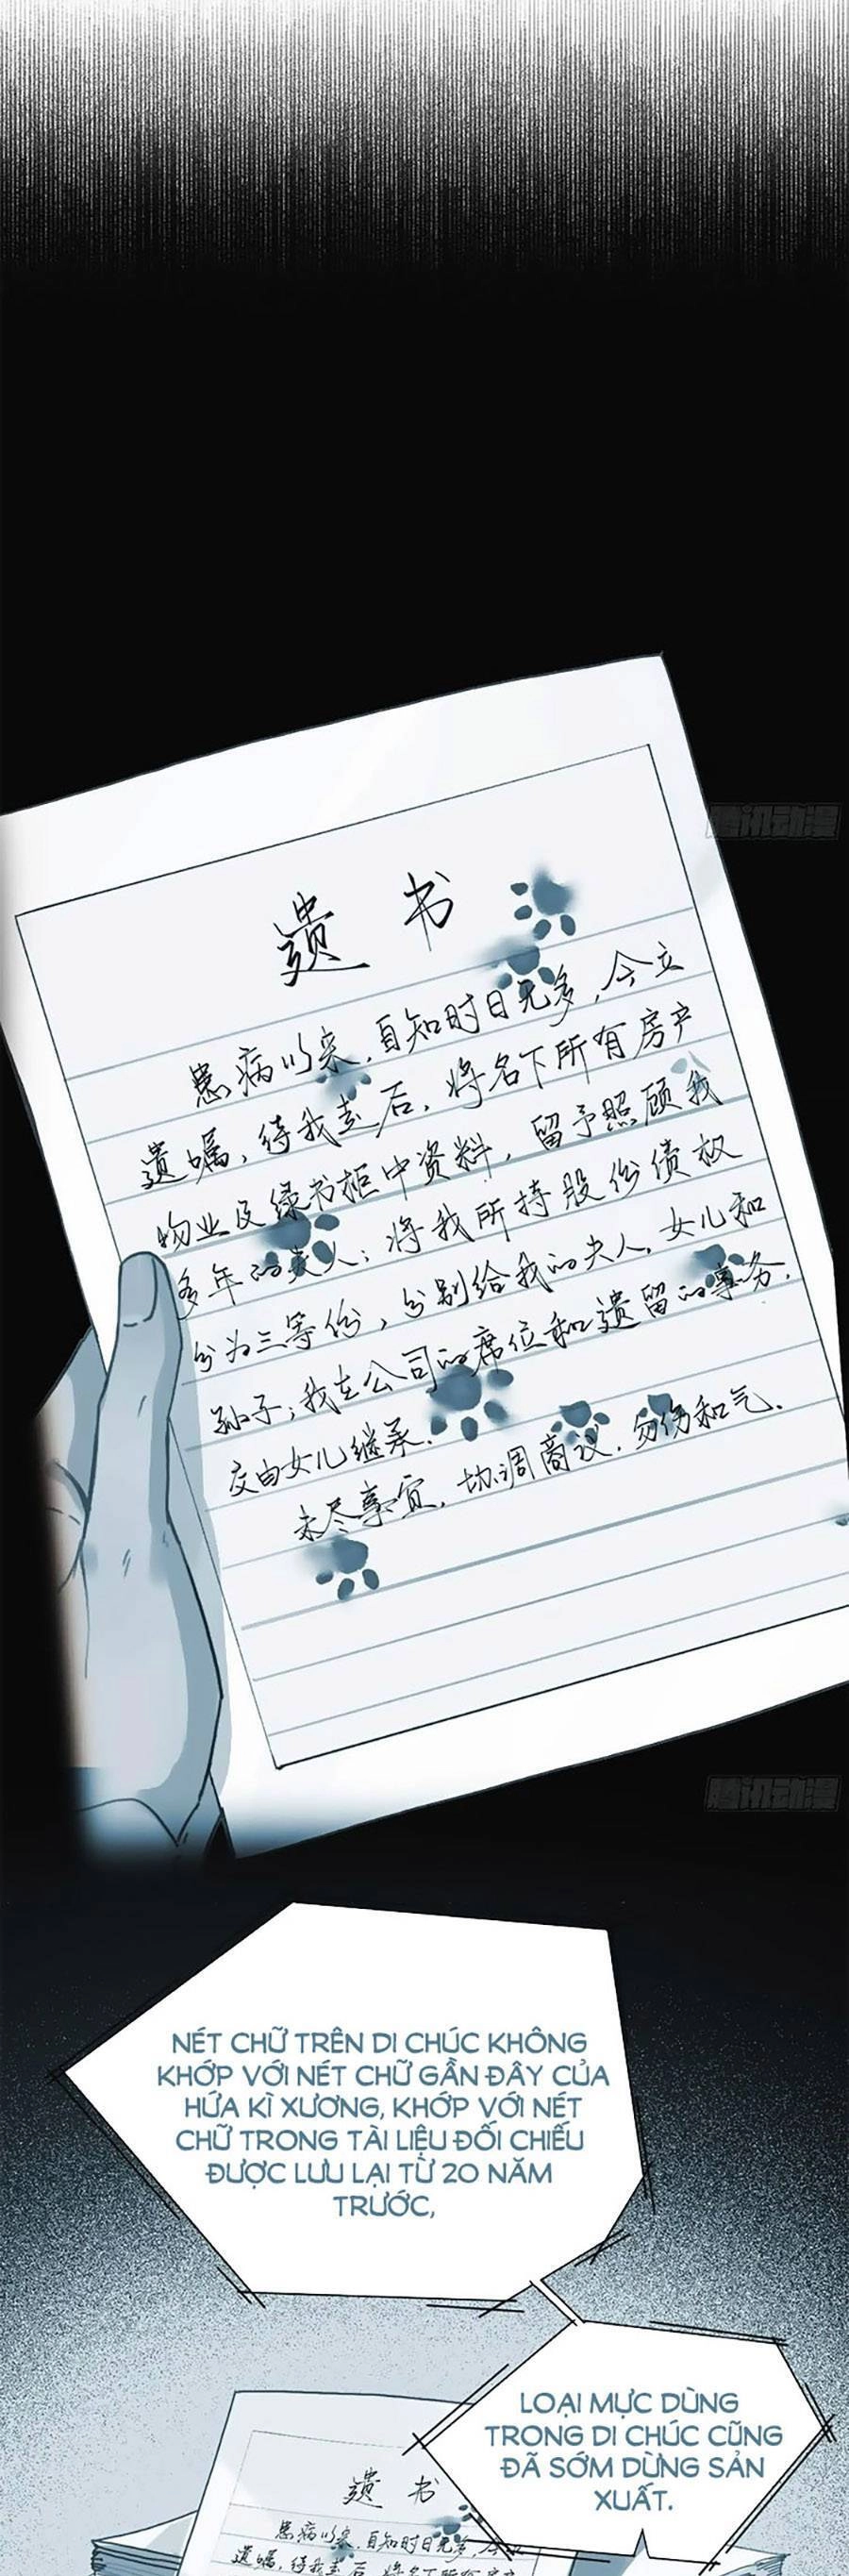 腾讯动漫
遗书
患病以来，自知时日无多，今立
遗嘱，待我走后，将名下所有房产
物业及绿书柜中资料，留予照顾我
多年的夫人；将我所持股份债权
分为三等份，分别给我的夫人，女儿和
孙子；我在公司的席位和遗留的事务，
交由女儿继承。
未尽事宜，协调商议，勿伤和气。
腾讯动漫
NÉT CHỮ TRÊN DI CHÚC KHÔNG
KHỚP VỚI NÉT CHỮ GẦN ĐÂY CỦA
HỨA KÌ XƯƠNG, KHỚP VỚI NÉT
CHỮ TRONG TÀI LIỆU ĐỐI CHIẾU
ĐƯỢC LƯU LẠI TỪ 20 NĂM
TRƯỚC,
LOẠI MỰC DÙNG
TRONG DI CHÚC CŨNG
ĐÃ SỚM DỪNG SẢN
XUẤT.
遗书
患病以来，自知时日无多，今立
遗嘱，待我走后，将名下所有房产